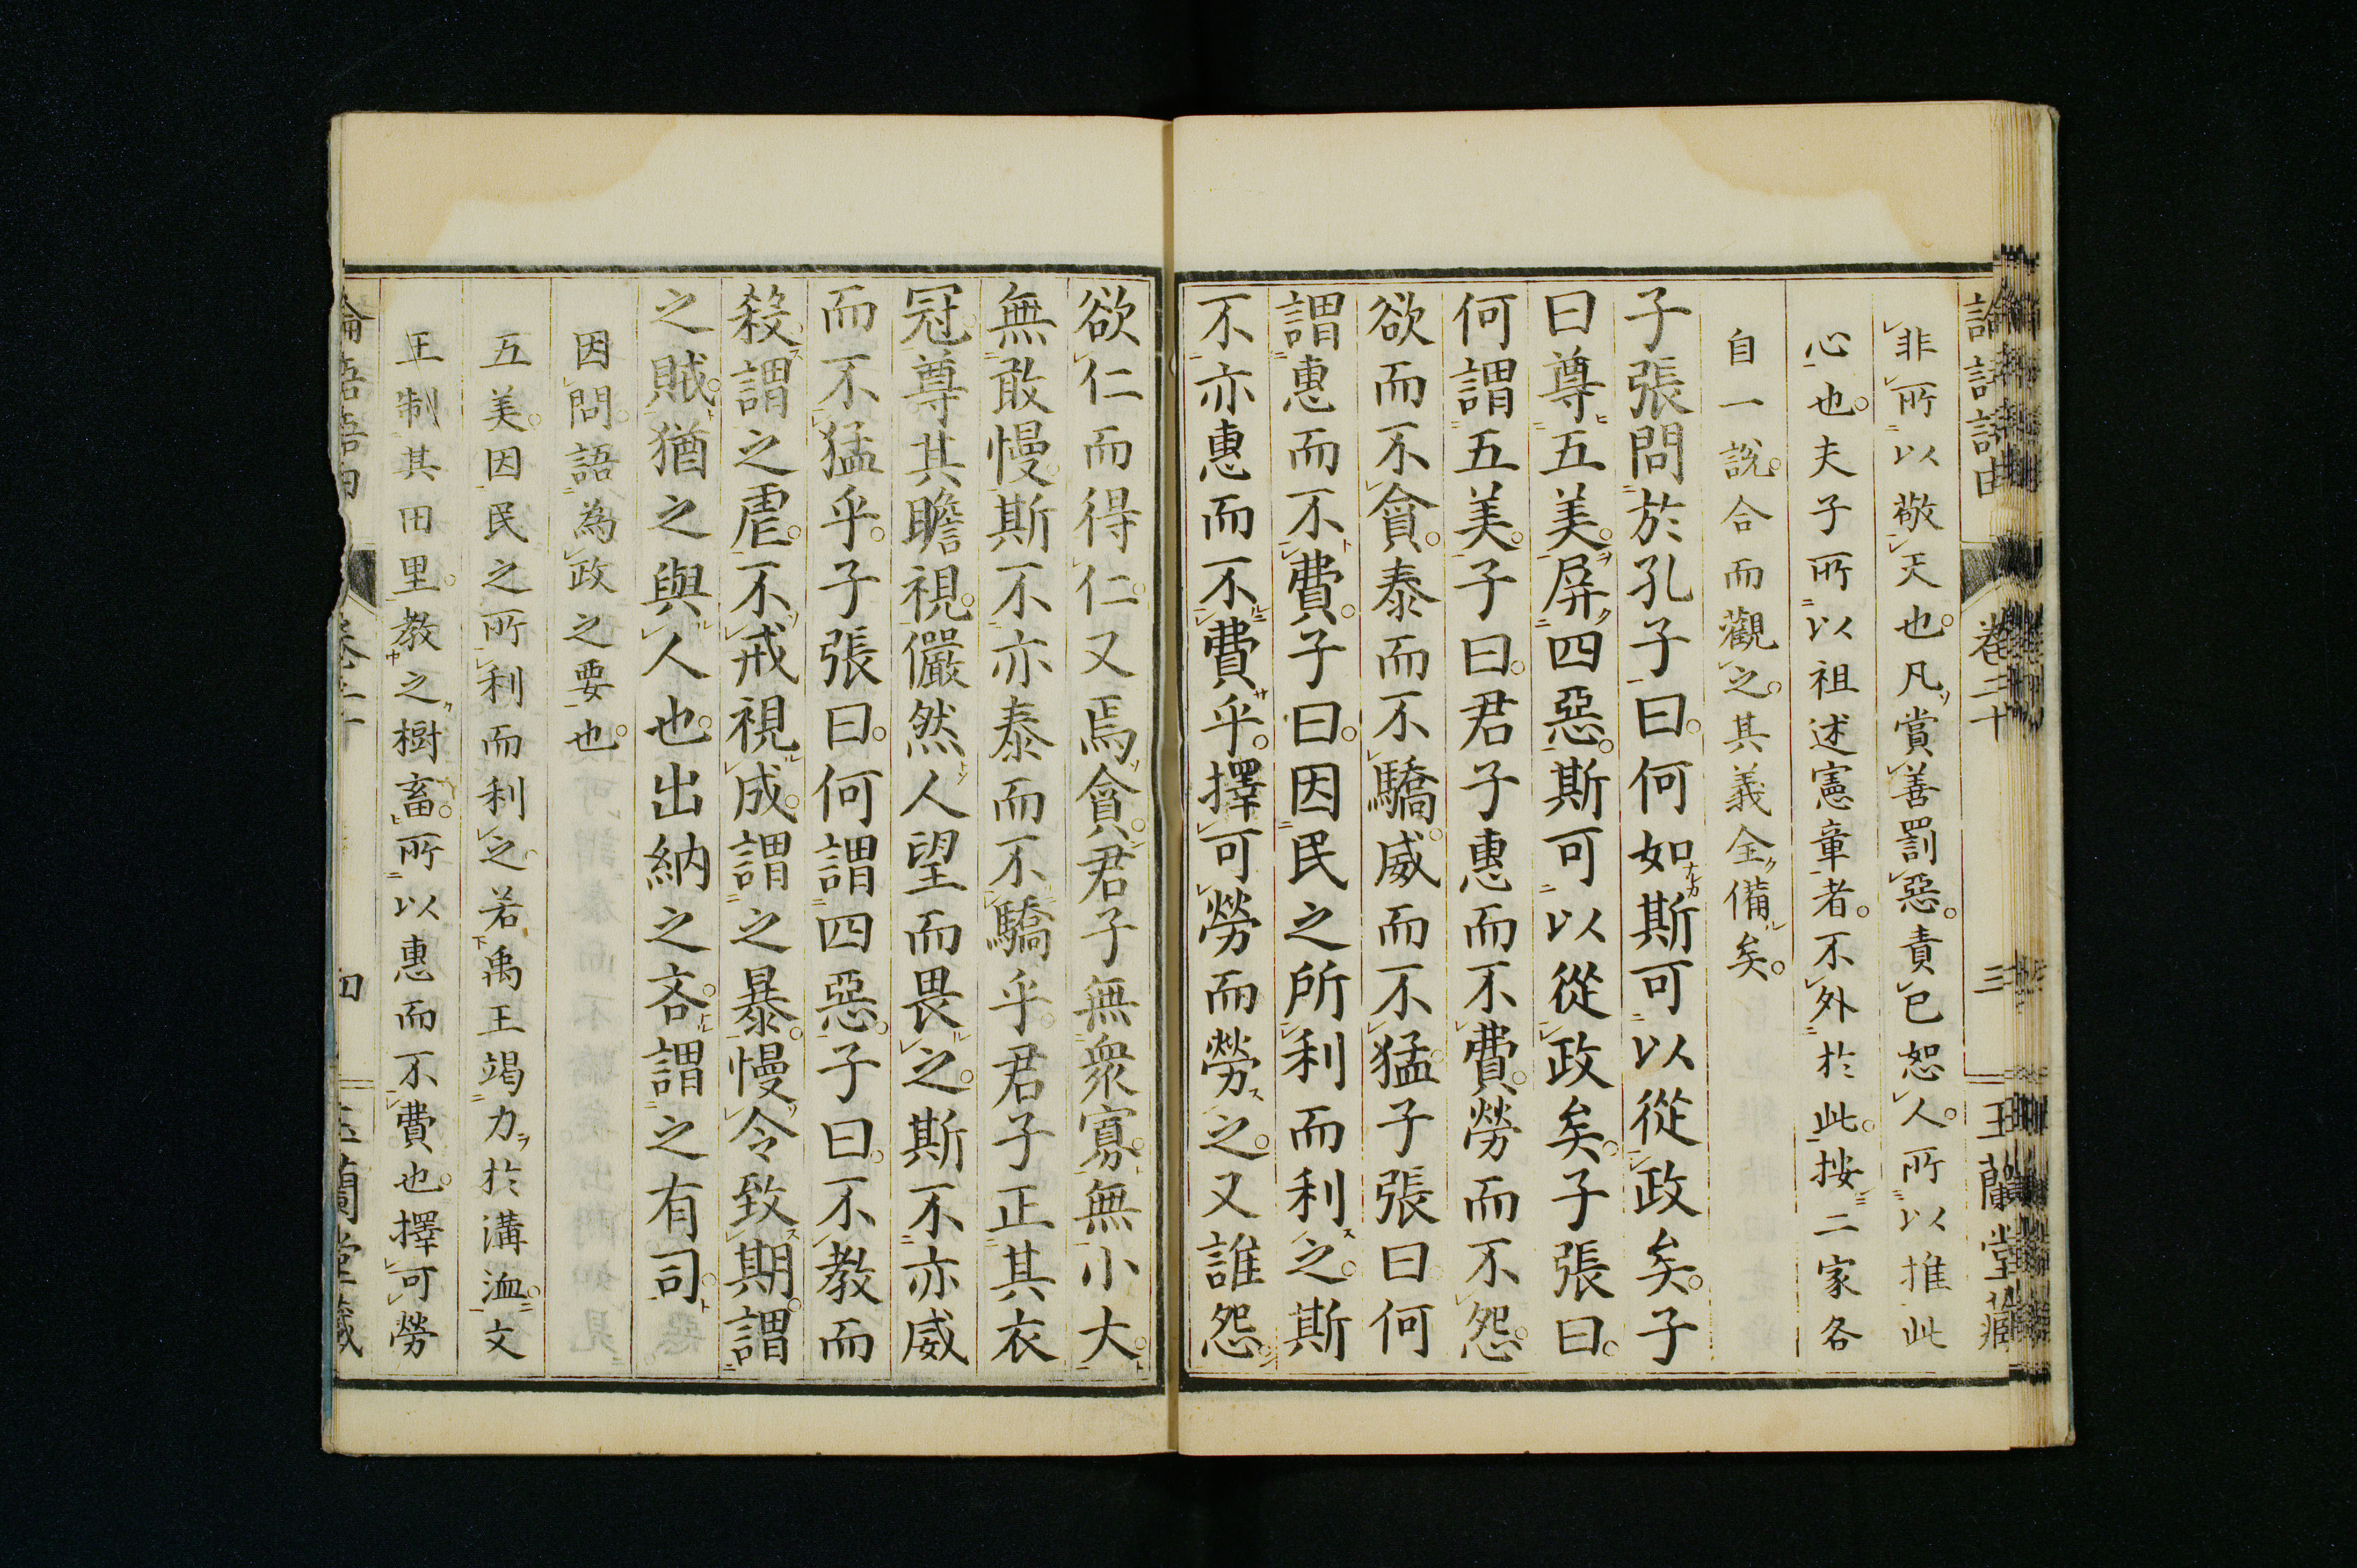 論語語由 卷二十 三 玉蘭堂藏
非所以敬天也。凡賞善罰惡。責已恕人。所以推此
心也。夫子所以祖述憲章者。不外於此。按二家各
自一說。合而觀之。其義全備矣。
子張問於孔子曰。何如斯可以從政矣。子
曰尊五美。屏四惡。斯可以從政矣。子張曰。
何謂五美。子曰。君子惠而不費。勞而不怨。
欲而不貪。泰而不驕。威而不猛。子張曰何
謂惠而不費。子曰。因民之所利而利之。斯
不亦惠而不費乎。擇可勞而勞之。又誰怨。
欲仁而得仁。又焉貪。君子無衆寡。無小大。
無敢慢。斯不亦泰而不驕乎。君子正其衣
冠。尊其瞻視。儼然人望而畏之。斯不亦威
而不猛乎。子張曰。何謂四惡。子曰。不教而
殺。謂之虐。不戒視成。謂之暴。慢令致期。謂
之賊。猶之與人也。出納之吝。謂之有司。
因問。語為政之要也。
五美。因民之所利而利之。若禹王竭力於溝洫。文
王制其田里。教之樹畜。所以惠而不費也。擇可勞
論語語由 卷二十 四 玉蘭堂藏